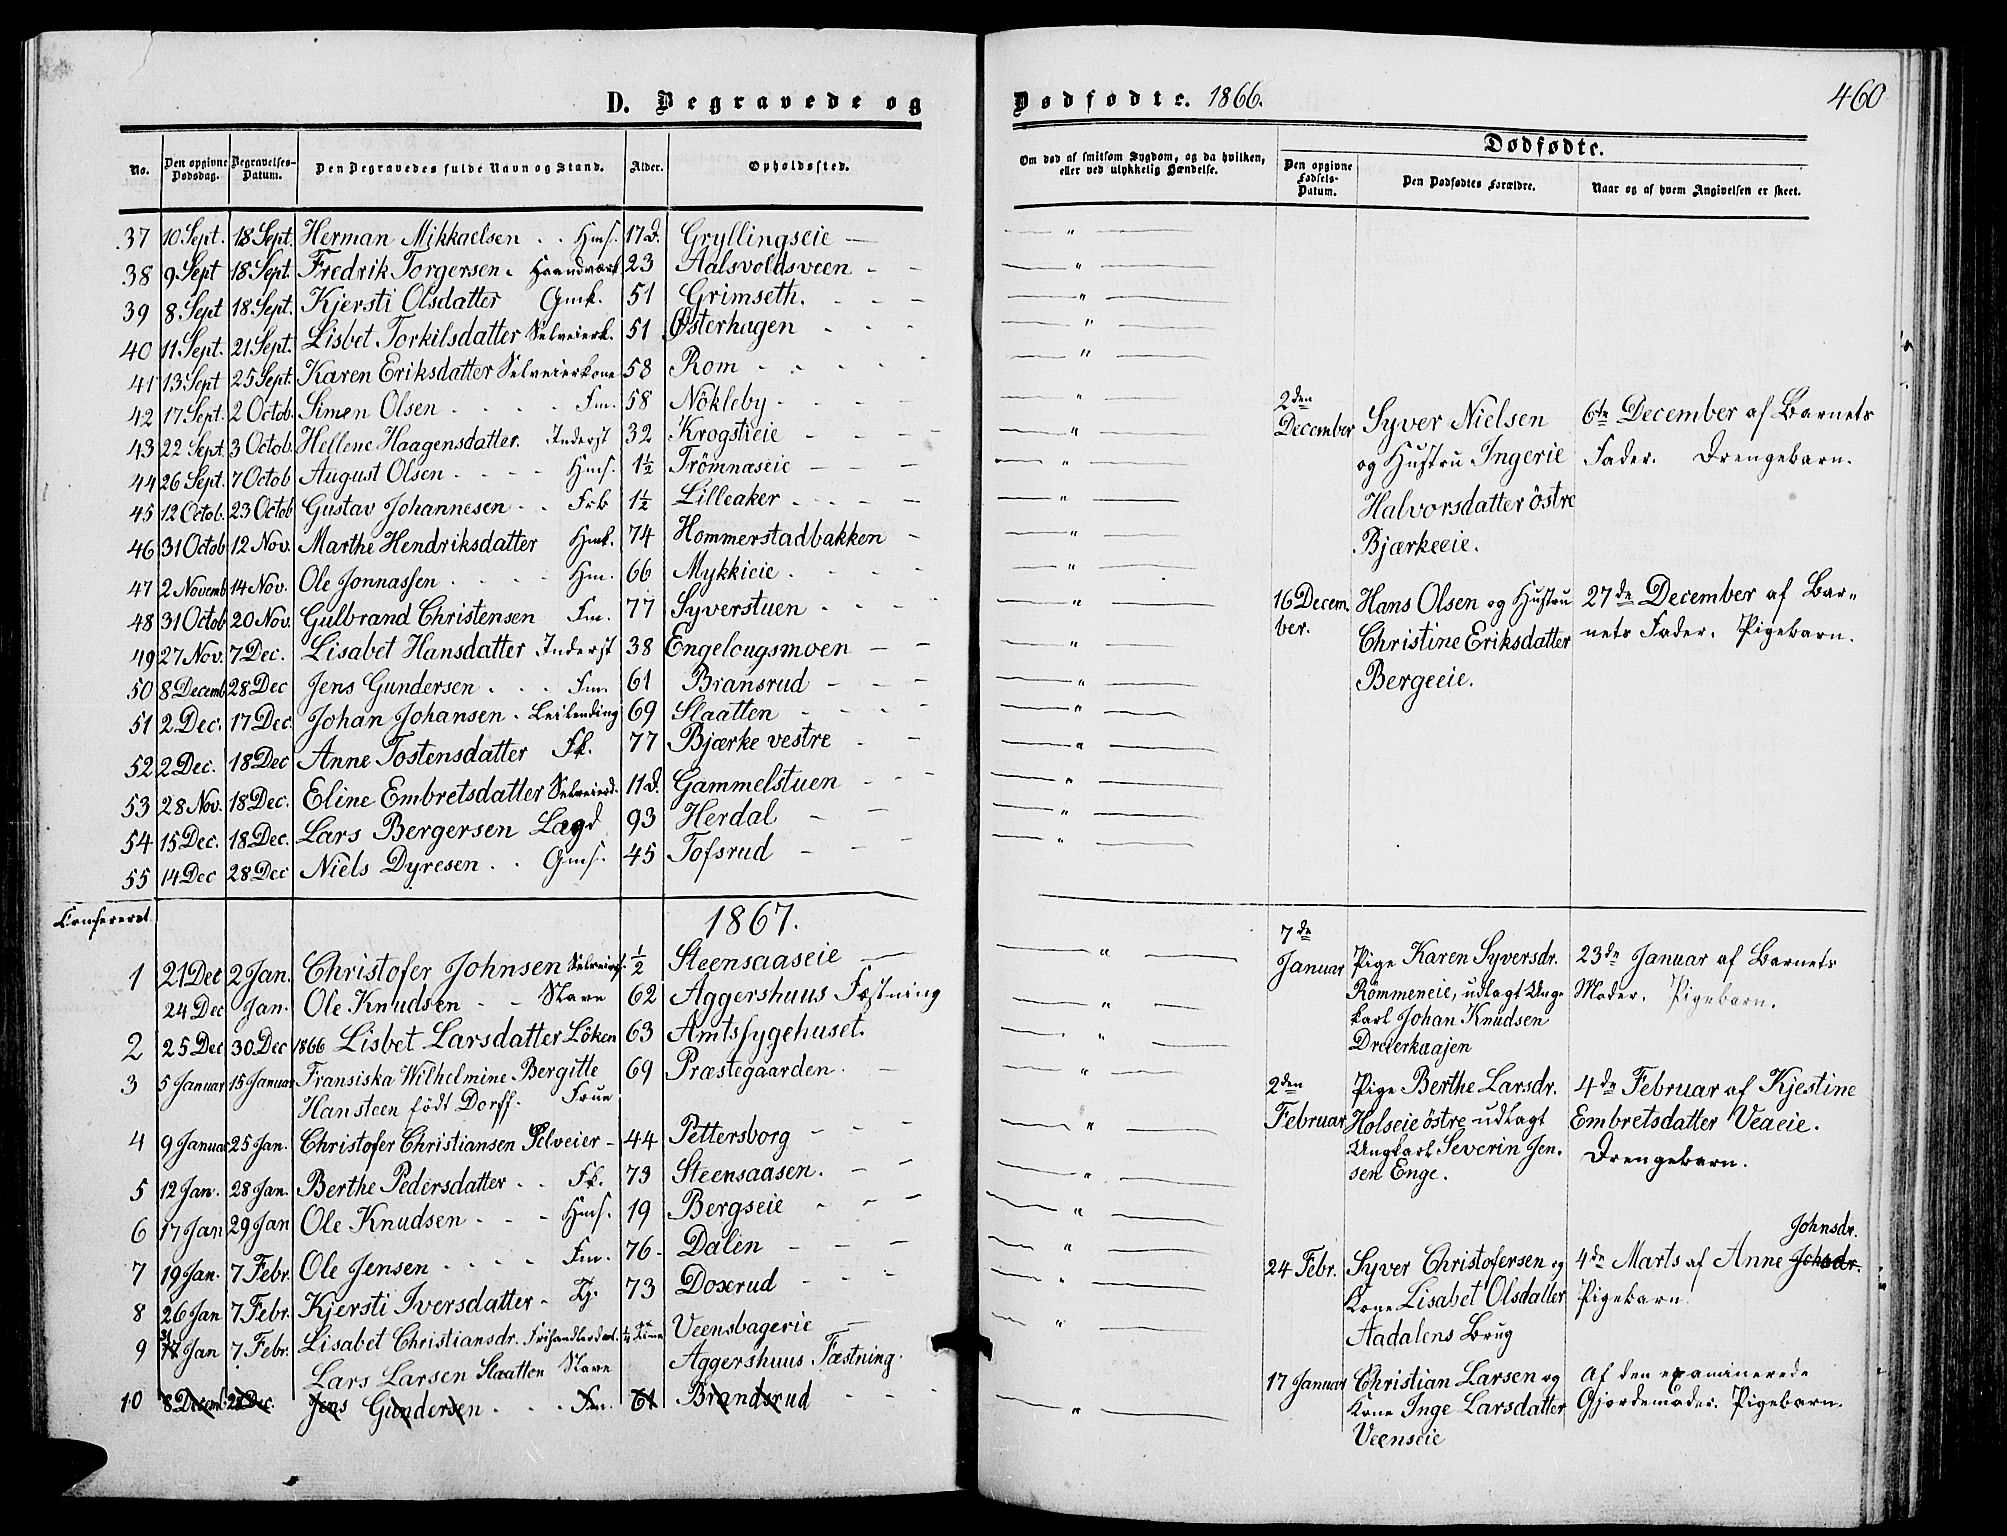 D. Begravede og
No. Den opgivne Dødsdag. Begravelses-Datum. Den Begravedes fulde Navn og Stand. Alder. Opholdssted.
37 10 Sept. 18 Sept. Herman Mikkaelsen . . Hms. 17 D. Gryllingseie —
38 9 Sept 18 Sept. Fredrik Torgersen . Haandværk 23 Aalsvoldsveen - -
39 8 Sept 18 Sept. Kjersti Olsdatter Gmk. 51 Grimseth. - - -
40 11 Sept. 21 Sept. Lisbet Torkilsdatter Selveierk. 51 Østerhagen - - -
41 13 Sept 25 Sept. Karen Eriksdatter Selveierkone 58 Rom - - - -
42 17 Sept. 2 Octob. Simen Olsen - - - - Fm. 58 Nökleby - - - -
43 22 Sept. 3 Octob. Hellene Haagensdatter. Inderst 32 Krogstieie - - -
44 26 Sept. 7 Octob August Olsen - - - - Hms. 1½ Trömnaseie - - -
45 12 Octob. 23 Octob Gustav Johannesen - - Frb 1½ Lilleaker - - - -
46 31 Octob 12 Nov. Marthe Hendriksdatter Hmk. 74 Hommerstadbakken -
47 2 Novemb 14 Nov. Ole Jonnassen - - - - Hm. 66 Mykkieie - - - -
48 31 Octob 20 Nov. Gulbrand Christensen Fm. 77 Syverstuen - - - -
49 27 Nov. 7 Dec. Lisabet Hansdatter Inderst 38 Engelougsmoen - -
50 8 Decemb 28 Dec Jens Gundersen - - - Fm. 61 Bransrud - - -
51 2 Dec. 17 Dec. Johan Johansen - Leilending 69 Slaatten - - - -
52 2 Dec. 18 Dec Anne Tostensdatter Fk. 77 Bjærke vestre - -
53 28 Nov. 18 Dec. Eline Embretsdatter Selveierd. 11 D. Gammelstuen - - -
54 15 Dec. 18 Dec. Lars Bergersen Lægd 93 Herdal - -
55 14 Dec 28 Dec Niels Dyresen - - Gms. 45 Tofsrud - - -
Confereret
1867.
1 21 Dec 2 Jan. Christofer Johnsen Selveiers. ½ Steensaaseie —
24 Dec Jan. Ole Knudsen - - Slave 62 Aggershuus Fæstning
2 25 Dec 30 Dec 1866 Lisbet Larsdatter Löken 63 Amtssygehuset.
3 5 Januar 15 Januar Fransiska Wilhelmine Bergitte 69 Præstegaarden. -
Hansteen født Dorff. Frue
4 9 Januar 25 Jan. Christofer Christiansen Selveier - 44 Pettersborg - - -
5 12 Jan. 28 Jan. Berthe Pedersdatter - - Fk. 73 Steensaasen. - -
6 17 Jan 29 Jan Ole Knudsen - - - Hms. 19 Bergseie - - -
7 19 Jan. 7 Febr. Ole Jensen - - - - Fm. 76 - Dalen - - -
8 26 Jan 7 Febr. Kjersti Iversdatter - 73 Doxrud - - -
9 Jan 7 Febr. Lisabet Christiansdr. Veensbagerie -
Lars Larsen Slaatten Slave Aggershuus Fæstning.
10 8 Decemb. 28 Dec. Jens Gundersen - - - Fm. 61 Brandsrud - - -
Dødfødte. 1866.
460
Om død af smitsom Sygdom, og da hvilken, eller ved ulykkelig Hændelse.
Dødfødte.
Den opgivne Fødsels-Datum. Den Dødfødtes Forældre. Naar og af hvem Angivelsen er skeet.
2den December Syver Nielsen 6te December af Barnets
og Hustru Ingerie Fader. Drengebarn.
Halvorsdatter östre
Bjærkeeie.
16 Decem- Hans Olsen og Hustru 27de December af Bar-
ber. Christine Eriksdatter nets Fader. Pigebarn.
Bergeeie.
7de Januar Pige Karen Syversdr. 23de Januar af Barnets
Römmeneie, udlagt Unge- Moder. Pigebarn.
karl Johan Knudsen
Dreierkaajen
2den Pige Berthe Larsdr. 4de Februar af Kjestine
Februar Holseie östre udlagt Embretsdatter Veaeie.
Ungkarl Severin Jen- Drengebarn.
sen Enge.
Johnsdr.
24 Febr. Syver Christofersen og 4de Marts af Anne
Kone Lisabet Olsdatter Pigebarn.
Aadalens Brug
17 Januar Christian Larsen og Af den examinerede
Kone Inge Larsdatter Gjordemoder. Pigebarn.
Veenseie